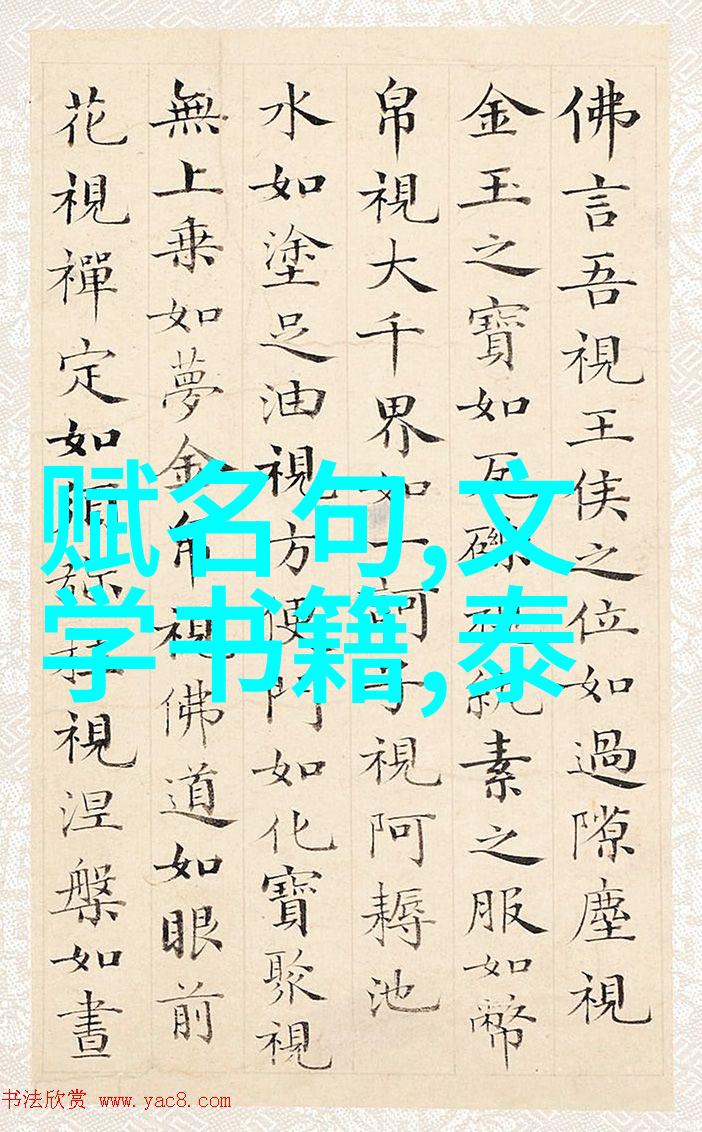 佛言吾視王侯之位如過隙塵視
金玉之寶如瓦礫視紈素之服如幣
帛視大千界如一訶子視阿耨池
水如塗足油視方便門如化寶聚視
無上乗如夢金帛視佛道如眼前
花視禪定如須弥柱視涅槃如晝
赋名句,文
学书籍,泰
书法欣赏 www.yac8.com